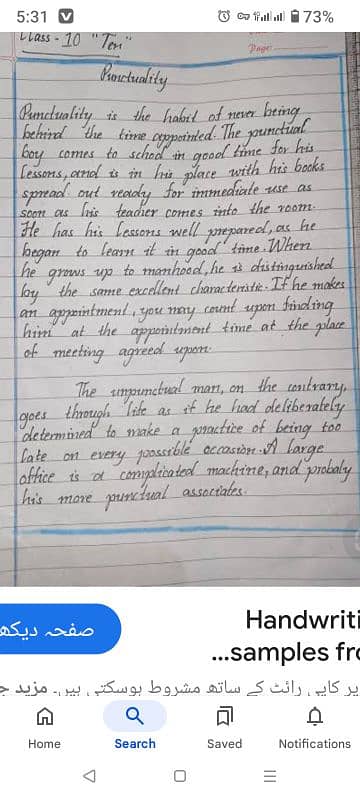 5:31
73%
Class - 10 "Ten"
Page:
Punctuality
Punctuality is the habit of never being
behind the time appointed. The punctual
boy comes to school in good time for his
lessons, and is in his place with his books
spread out ready for immediate use as
soon as his teacher comes into the room.
He has his lessons well prepared, as he
began to learn it in good time. When
he grows up to manhood, he is distinguished
by the same excellent characteristic. If he makes
an appointment, you may count upon finding
him at the appointment time at the place
of meeting agreed upon.
The unpunctual man, on the contrary,
goes through life as if he had deliberately
determined to make a practice of being too
late on every possible occasion. A large
office is a complicated machine, and probaly
his more punctual associates.
صفحہ دیکھ
Handwriti
...samples fro
پر کاپی رائٹ کے ساتھ مشروط ہوسکتی ہیں۔ مزید ج
Home
Search
Saved
Notifications